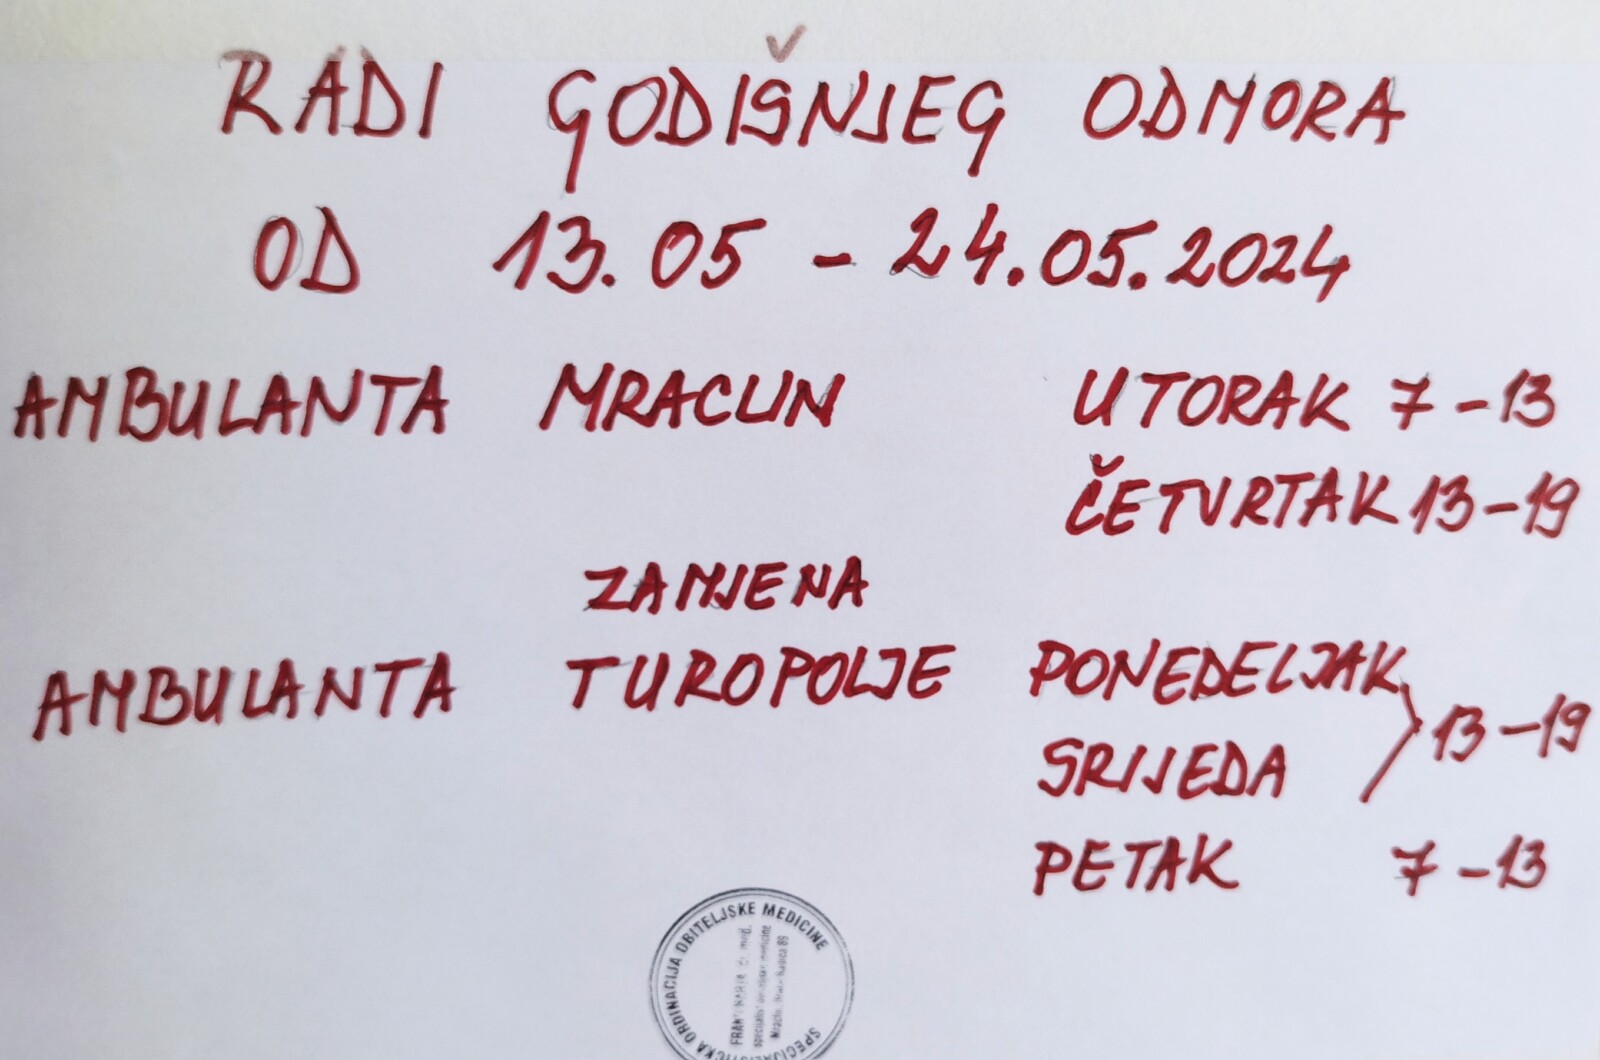 RADI GODIŠNJEG ODMORA
OD 13.05 - 24.05.2024
AMBULANTA MRACLIN UTORAK 7-13
ČETVRTAK 13-19
ZAMJENA
AMBULANTA TUROPOLJE PONEDELJAK
SRIJEDA 13-19
PETAK 7-13
SPECIJALISTIČKA ORDINACIJA OBITELJSKE MEDICINE
dr. med.
specijalist obiteljske medicine
89